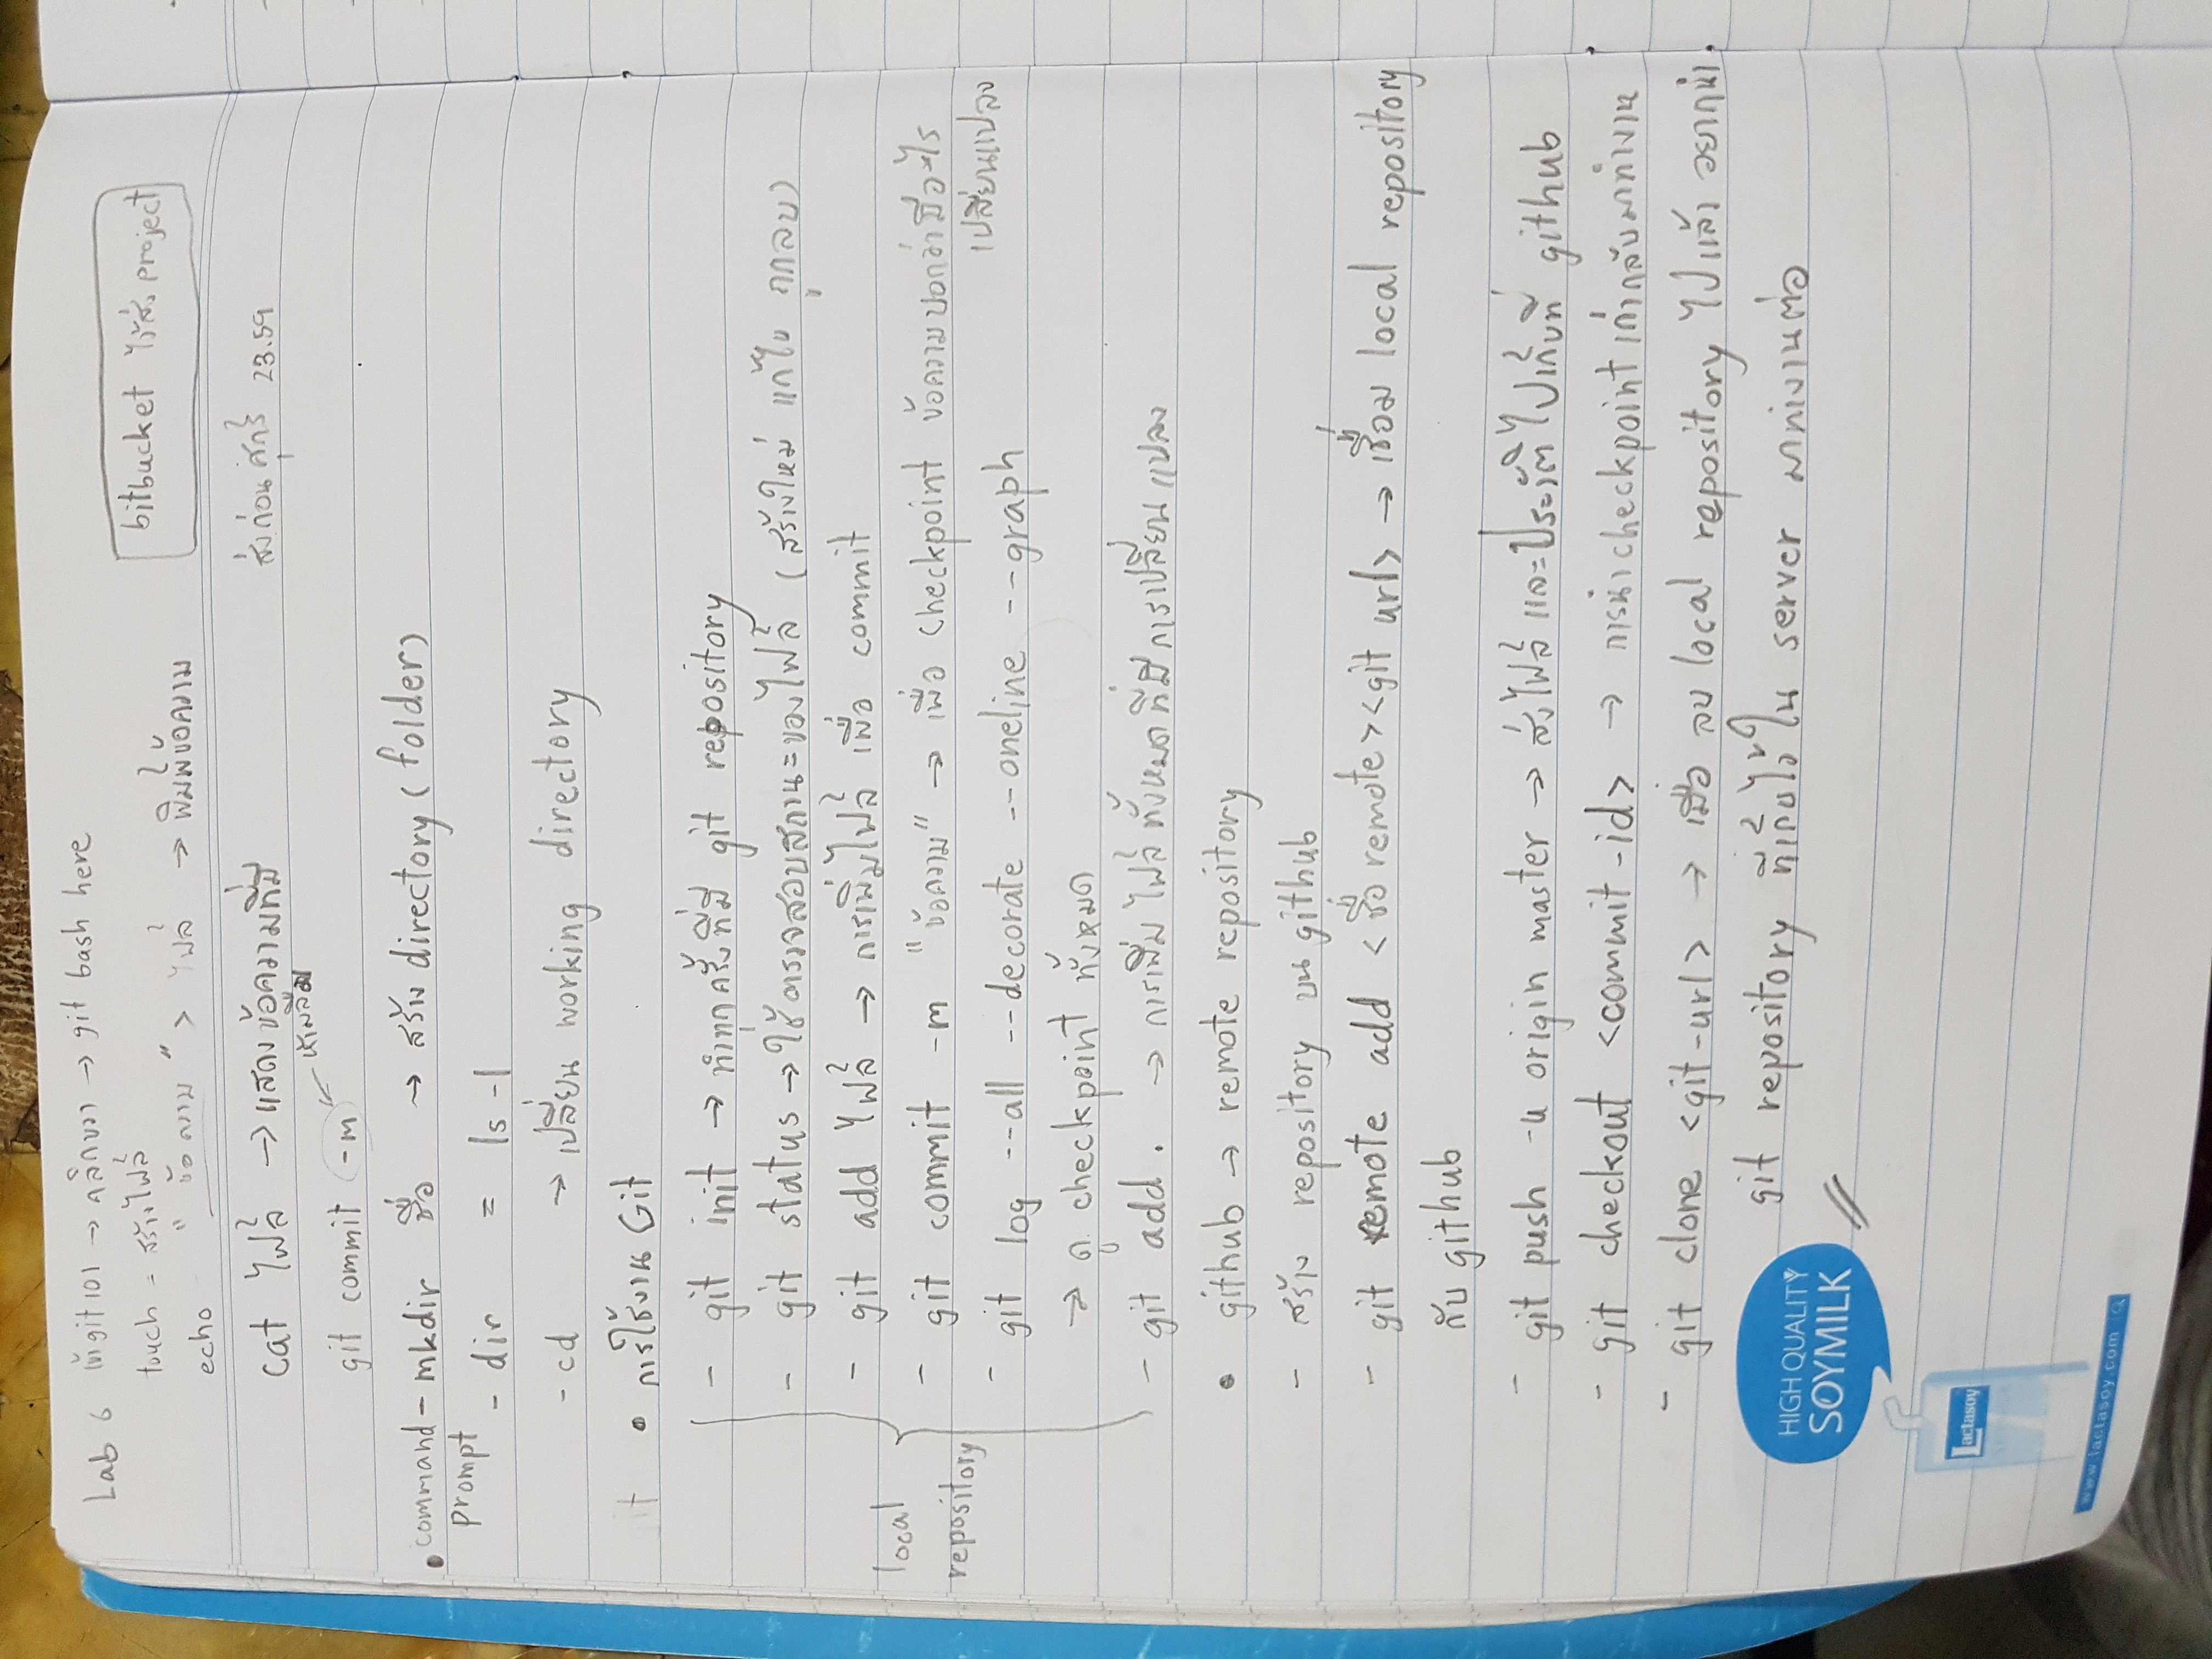 Lab 6 เข้า git101 → คลิกขวา → git bash here
touch = สร้างไฟล์
echo "ข้อความ" > ไฟล์ → พิมพ์ข้อความ
bitbucket ไว้ส่ง project
cat ไฟล์ → แสดงข้อความที่มี
ส่งก่อน ศุกร์ 23.59
ห้ามลืม
git commit -m
• command prompt - mkdir ชื่อ → สร้าง directory (folder)
- dir = ls -l
- cd → เปลี่ยน working directory
• การใช้งาน Git
local repository
- git init → ทำทุกครั้งที่มี git repository
- git status → ใช้ตรวจสอบสถานะของไฟล์ (สร้างใหม่ แก้ไข ถูกลบ)
- git add ไฟล์ → การเพิ่มไฟล์ เพื่อ commit
- git commit -m "ข้อความ" → เพื่อ checkpoint ข้อความบอกว่ามีอะไร
เปลี่ยนแปลง
- git log --all --decorate --oneline --graph
→ ดู checkpoint ทั้งหมด
- git add . → การเพิ่มไฟล์ทั้งหมดที่มีการเปลี่ยนแปลง
• github → remote repository
- สร้าง repository บน github
- git remote add <ชื่อ remote><git url> → เชื่อม local repository
กับ github
- git push -u origin master → ส่งไฟล์ และประวัติ ไปเก็บที่ github
- git checkout <commit-id> → การนำ checkpoint เก่ากลับมาทำงาน
- git clone <git-url> → เมื่อ ลบ local repository ไปแล้ว อยากนำ
git repository ที่เก็บไว้ใน server มาทำงานต่อ
HIGH QUALITY
SOYMILK
Lactasoy
www.lactasoy.com